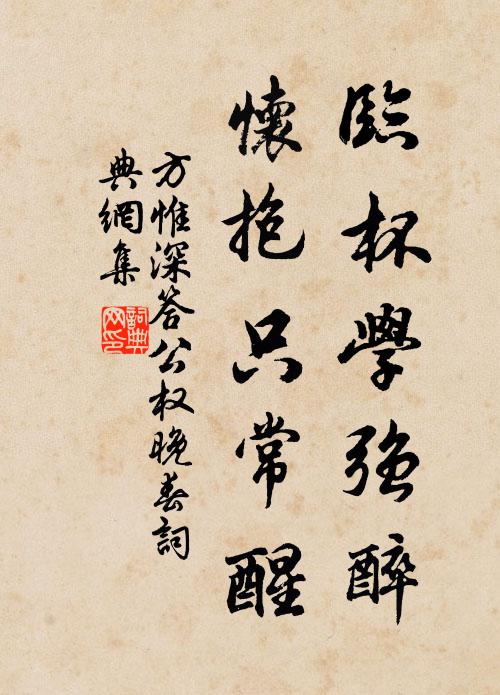 臨杯學強醉
懷抱只常醒
方惟深答公权晚春詞
典網集
詞典网印